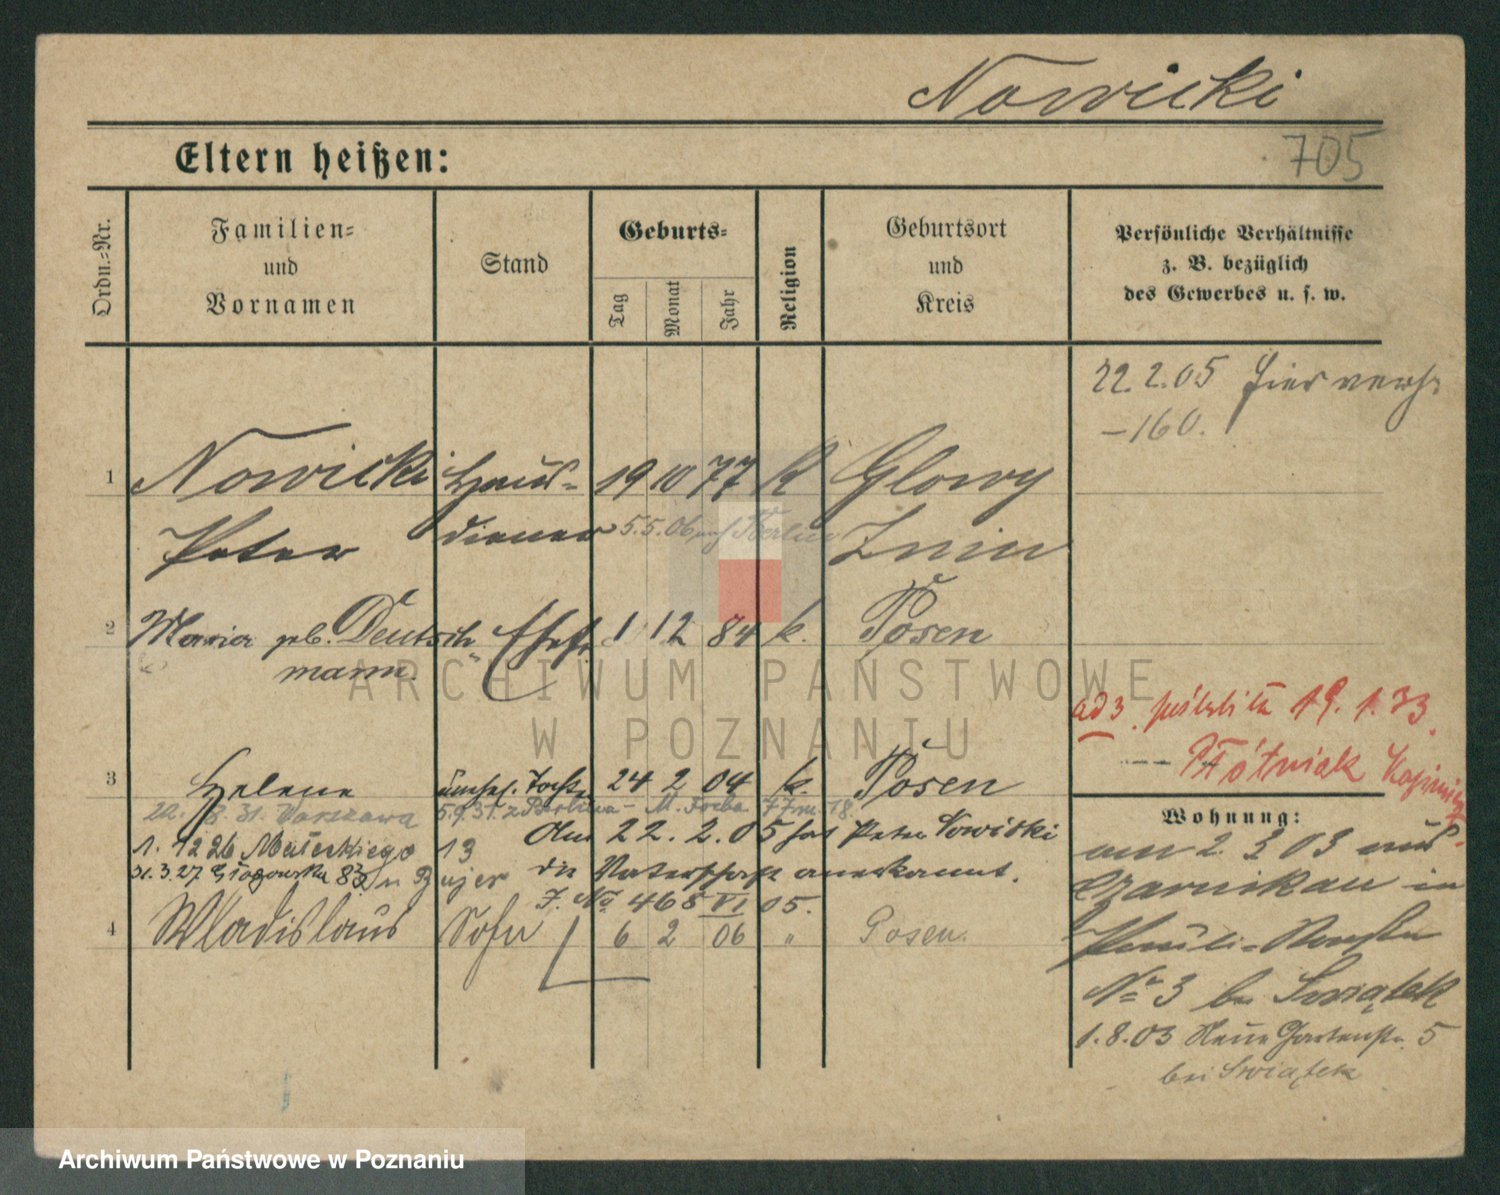 Nowicki
705
Eltern heißen:
Ordn.-Nr.
Familien-
und
Vornamen
Stand
Geburts-
Tag
Monat
Jahr
Religion
Geburtsort
und
Kreis
Persönliche Verhältnisse
z. B. bezüglich
des Gewerbes u. s. w.
22.2.05 hier
-160.
1 Nowicki Haus- 19 10 77 K Glowy
Peter diener 5.5.06 auf Berlin Znin
2 Maria geb. Deutsch- Ehefr. 1 12 84 k. Posen
mann.
ad 3. 19.1.33
Płótniak
3 Helene Tocht. 24 2 04 k. Posen
8. 31. Warszawa 5.9.31. z Berlina - M. Focha
Am 22. 2. 05 hat Peter Nowicki
1. 12 26 Małeckiego 13
die Vaterschaft anerkannt.
31. 3. 27. Głogowska 83
J. No 468 VI 05.
4 Wladislaus Sohn 6 2 06 " Posen.
Wohnung:
am 2. 3 03 aus
Czarnikau in
Pauli-Kirchstr
No 3 bei Swiątek
1.8.03 Neue Gartenstr. 5
bei Swiątek
ARCHIWUM PAŃSTWOWE
W POZNANIU
Archiwum Państwowe w Poznaniu